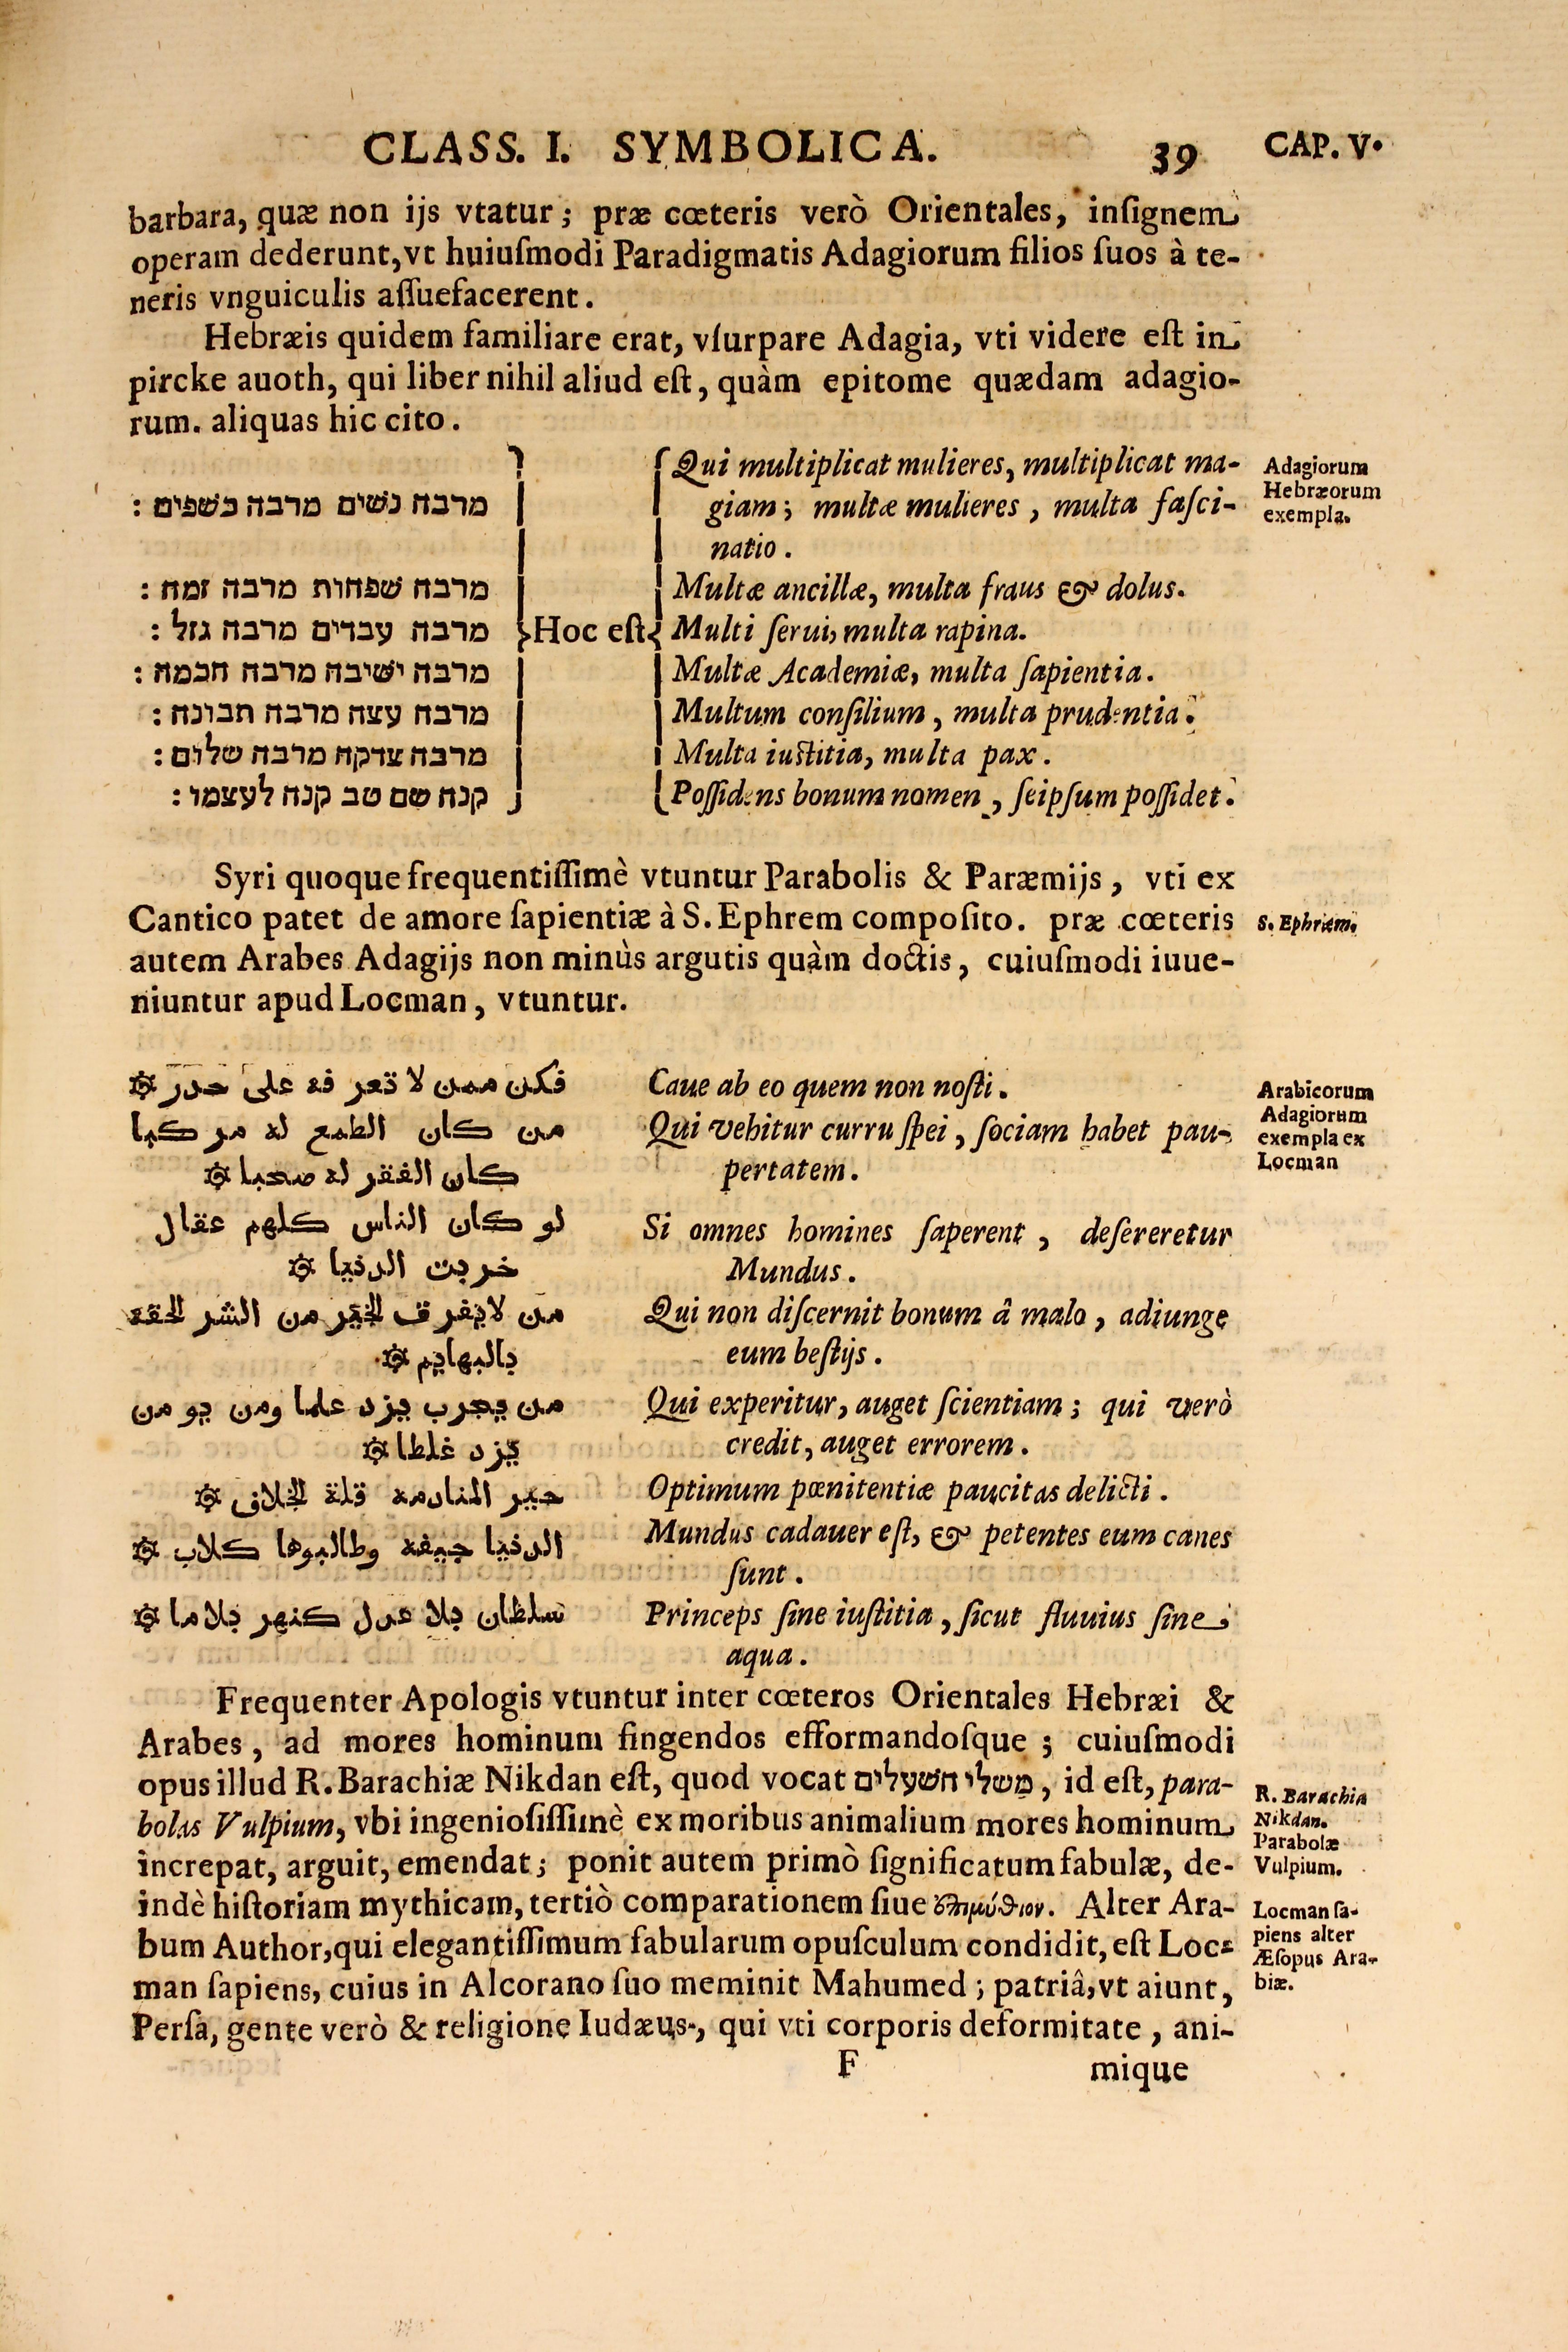 CLASS. I. SYMBOLICA. 39 CAP. V.
barbara, quæ non ijs vtatur; præ cœteris verò Orientales, inſignem
operam dederunt, vt huiuſmodi Paradigmatis Adagiorum filios ſuos à te-
neris vnguiculis aſſuefacerent.
Hebræis quidem familiare erat, vſurpare Adagia, vti videre eſt in
pircke auoth, qui liber nihil aliud eſt, quàm epitome quædam adagio-
rum. aliquas hic cito.
מרבה נשים מרבה כשפים :
מרבה שפחות מרבה זמה :
מרבה עבדים מרבה גזל :
מרבה ישיבה מרבה חכמה :
מרבה עצה מרבה תבונה :
מרבה צדקה מרבה שלום :
קנה שם טב קנה לעצמו :
Hoc eſt
Qui multiplicat mulieres, multiplicat ma-
giam; multæ mulieres, multa faſci-
natio.
Multæ ancillæ, multa fraus & dolus.
Multi ſerui, multa rapina.
Multæ Academiæ, multa ſapientia.
Multum conſilium, multa prudentia.
Multa iuſtitia, multa pax.
Poſſidens bonum nomen, ſeipſum poſſidet.
Adagiorum
Hebræorum
exempla.
Syri quoque frequentiſſimè vtuntur Parabolis & Paræmijs, vti ex
Cantico patet de amore ſapientiæ à S. Ephrem compoſito. præ cœteris
autem Arabes Adagijs non minùs argutis quàm doctis, cuiuſmodi iuue-
niuntur apud Locman, vtuntur.
S. Ephræm.
فكن ممن لا تعر فه على حدر ۞
من كان الطمع له مر كبا
كان الفقر له صحبا ۞
لو كان الناس كلهم عقال
خربت الدنيا ۞
من لايفرق الخير من الشر لحقه
بالبهايم ۞
من يجرب يزد علما ومن يو من
يزد غلطا ۞
حير المنادمه قلة الخلاف ۞
الدنيا جيفه وطالبوها كلاب ۞
سلطان بلا عدل كنهر بلا ما ۞
Caue ab eo quem non noſti.
Qui vehitur curru ſpei, ſociam habet pau-
pertatem.
Si omnes homines ſaperent, deſereretur
Mundus.
Qui non diſcernit bonum â malo, adiunge
eum beſtijs.
Qui experitur, auget ſcientiam; qui verò
credit, auget errorem.
Optimum pœnitentiæ paucitas delicti.
Mundus cadauer eſt, & petentes eum canes
ſunt.
Princeps ſine iuſtitia, ſicut fluuius ſine
aqua.
Arabicorum
Adagiorum
exempla ex
Locman
Frequenter Apologis vtuntur inter cœteros Orientales Hebræi &
Arabes, ad mores hominum fingendos efformandoſque; cuiuſmodi
opus illud R. Barachiæ Nikdan eſt, quod vocat משלי השעלים, id eſt, para-
bolas Vulpium, vbi ingenioſiſſimè ex moribus animalium mores hominum
increpat, arguit, emendat; ponit autem primò ſignificatum fabulæ, de-
indè hiſtoriam mythicam, tertiò comparationem ſiue ἐπιμύθιον. Alter Ara-
bum Author, qui elegantiſſimum fabularum opuſculum condidit, eſt Loc-
man ſapiens, cuius in Alcorano ſuo meminit Mahumed; patriâ, vt aiunt,
Perſa, gente verò & religione Iudæus, qui vti corporis deformitate, ani-
R. Barachia
Nikdan.
Parabolæ
Vulpium.
Locman ſa-
piens alter
Æſopus Ara-
biæ.
F mique